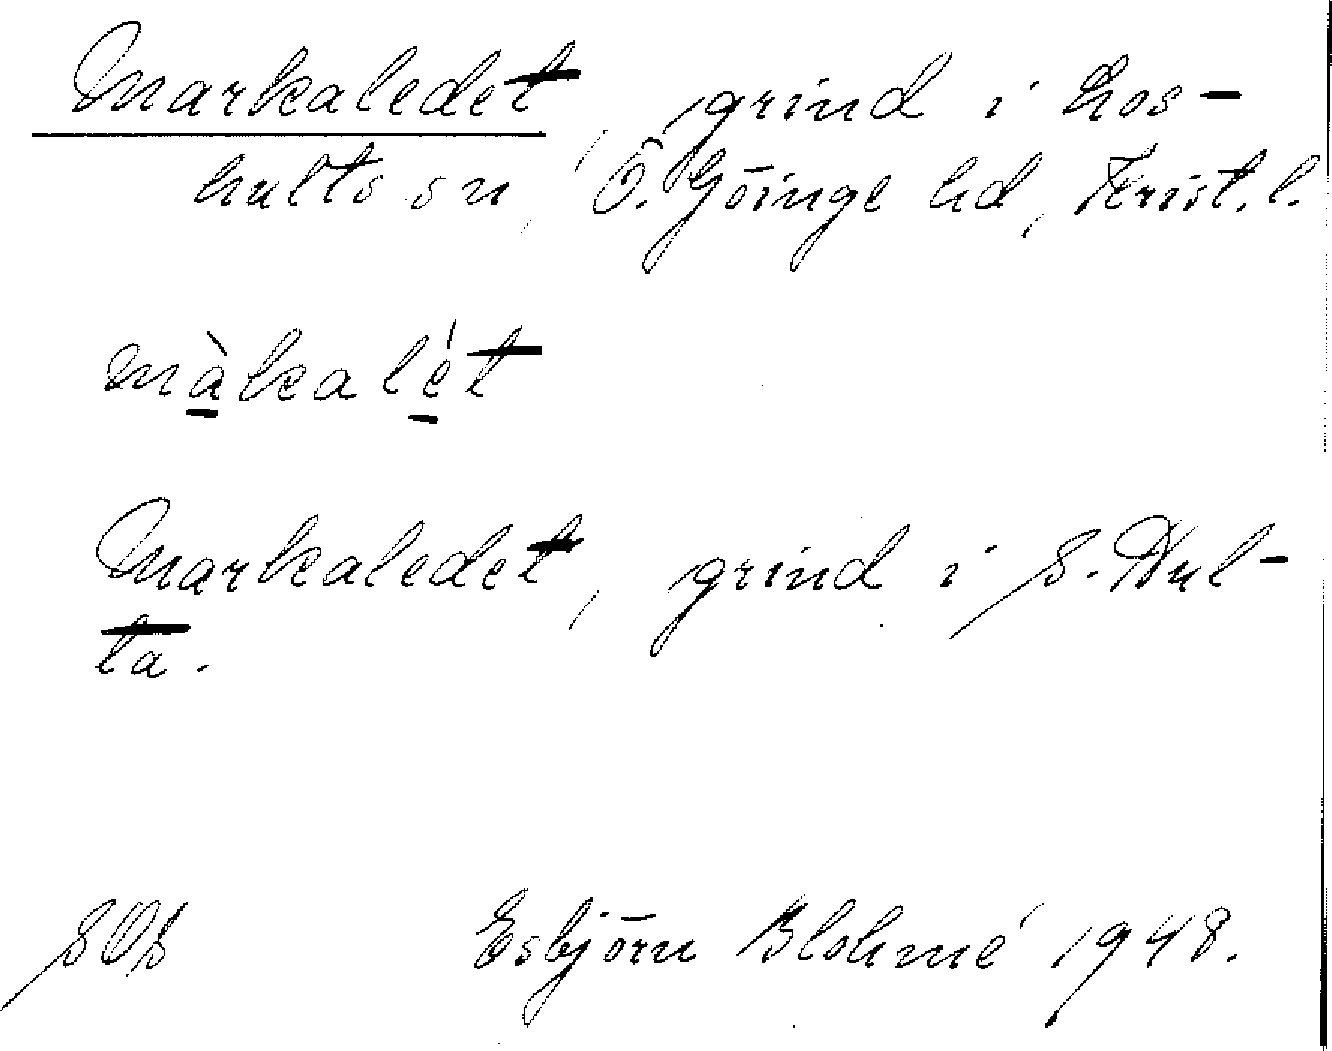 Markaledet, grind i Los-
hults sn, Ö. Göinge hd, Krist. l.
màkalét
Markaledet, grind i S. Hul-
ta.
Esbjörn Blohmé 1948.